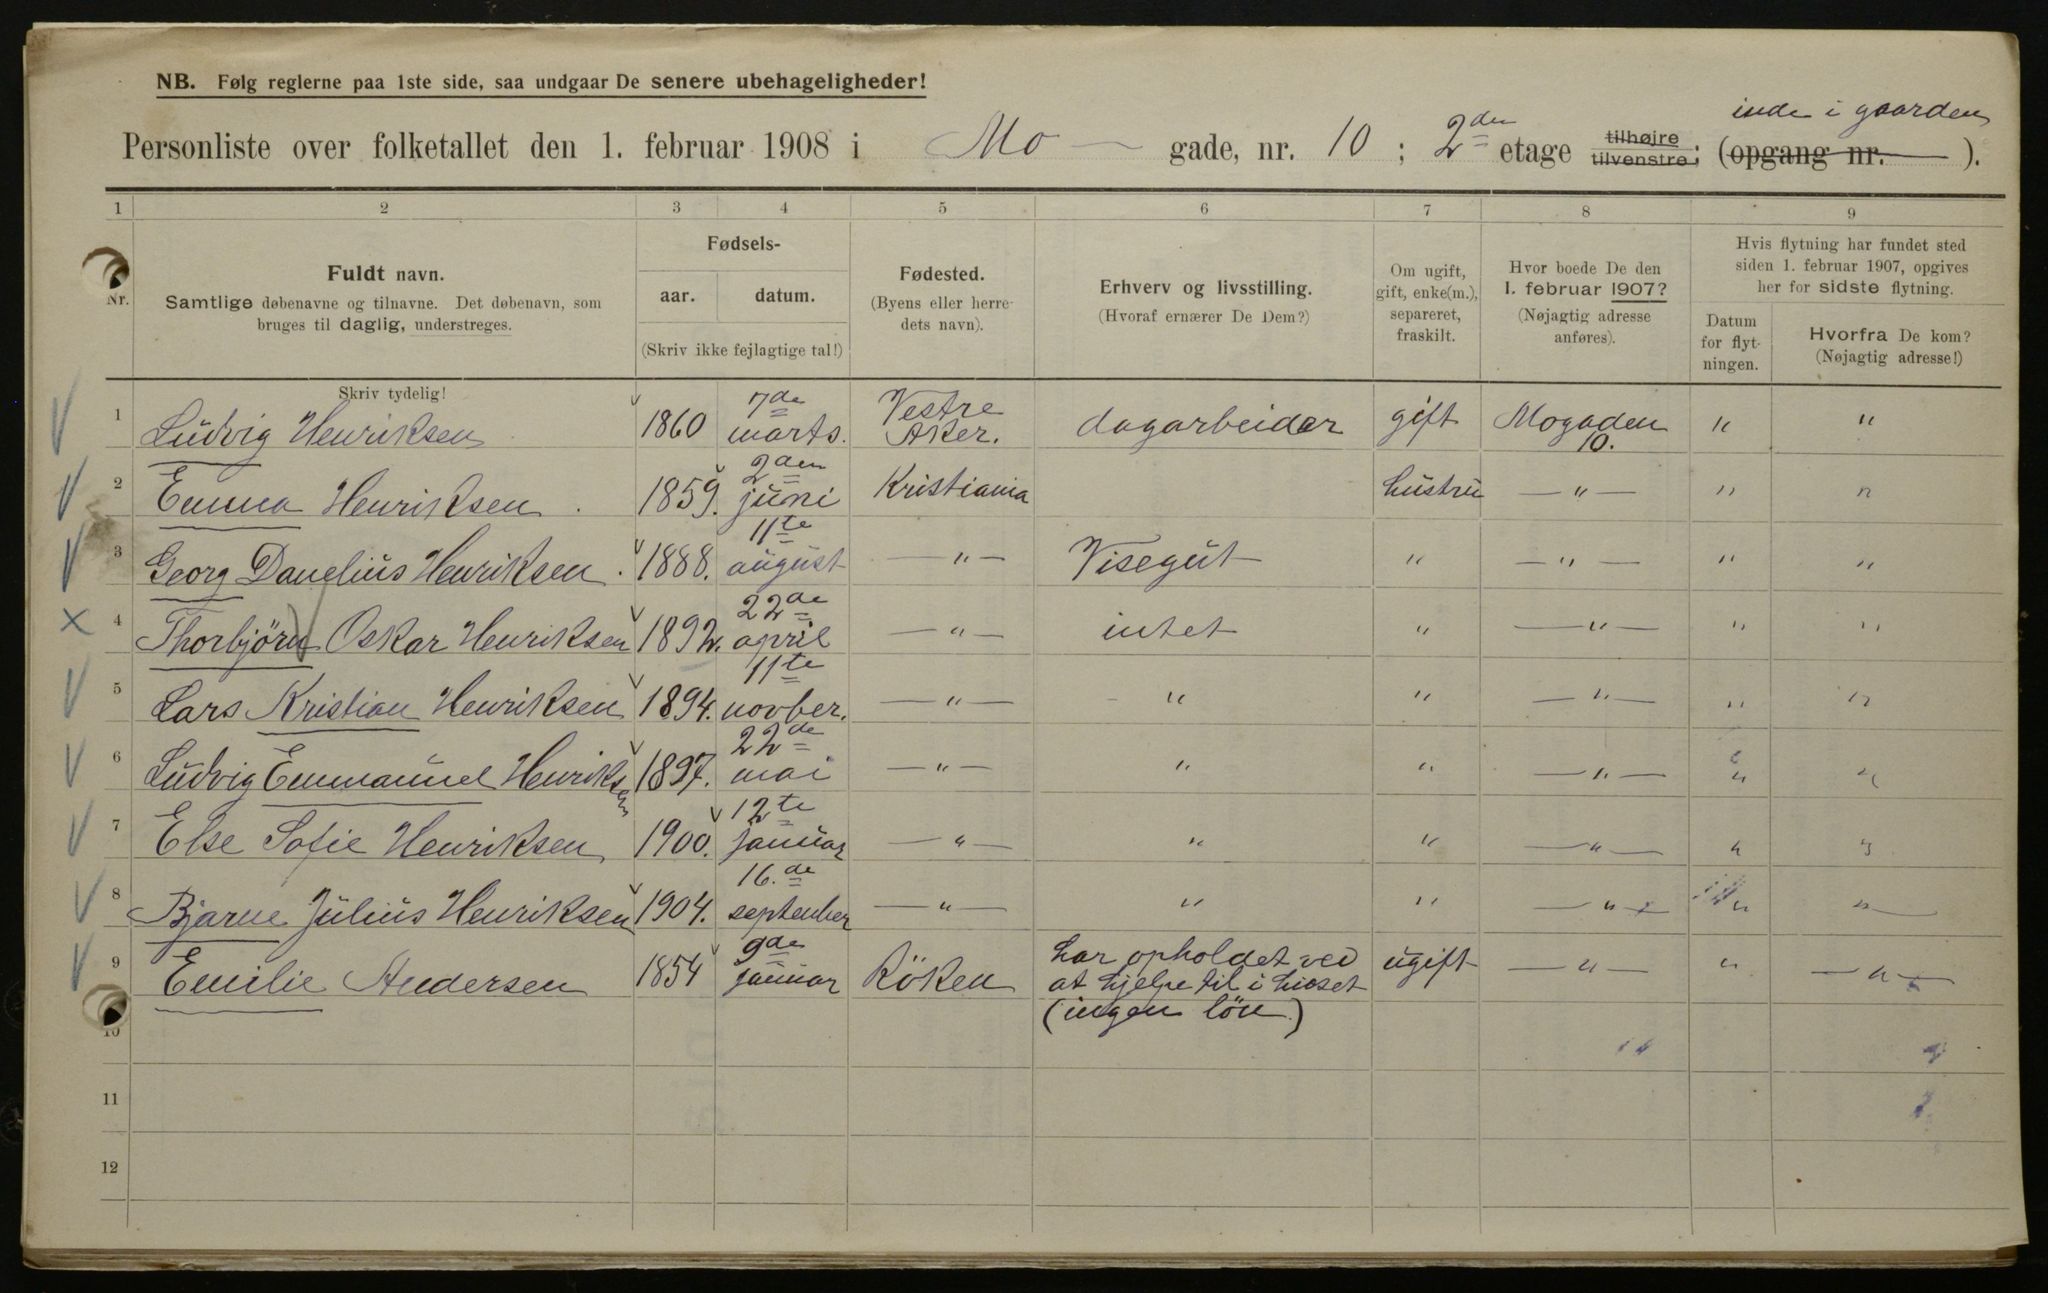 NB. Følg reglerne paa 1ste side, saa undgaar De senere ubehageligheder!
inde i gaarden
Personliste over folketallet den 1. februar 1908 i Mo— gade, nr. 10 ; 2den etage tilhøjre tilvenstre; (opgang nr. — ).
1 2 3 4 5 6 7 8 9
Nr.
Fuldt navn.
Samtlige døbenavne og tilnavne. Det døbenavn, som
bruges til daglig, understreges.
Skriv tydelig!
Fødsels-
aar. datum.
(Skriv ikke fejlagtige tal!)
Fødested.
(Byens eller herre-
dets navn).
Erhverv og livsstilling.
(Hvoraf ernærer De Dem?)
Om ugift,
gift, enke(m.),
separeret,
fraskilt.
Hvor boede De den
1. februar 1907?
(Nøjagtig adresse
anføres).
Hvis flytning har fundet sted
siden 1. februar 1907, opgives
her for sidste flytning.
Datum
for flyt-
ningen.
Hvorfra De kom?
(Nøjagtig adresse!)
1 Ludvig Henriksen 1860 7de marts. Vestre Aker. dagarbeider gift Mogaden 10. " "
2 Emma Henriksen 1859. 2den juni Kristiania hustru —"— " "
3 Georg Danelius Henriksen. 1888. 11te august —"— Visegut " —"— " "
4 Thorbjörn Oskar Henriksen 1892. 22de april —"— intet " —"— " "
5 Lars Kristian Henriksen 1894. 11te novber. —"— " " —"— " "
6 Ludvig Emmanuel Henriksen 1897. 22de mai —"— " " —"— " "
7 Else Sofie Henriksen 1900. 12te januar —"— " " —"— " "
8 Bjarne Julius Henriksen 1904. 16.de september —"— " " —"— " "
9 Emilie Andersen 1854 9de januar Röken har opholdet ved ugift —"— " —"—
at hjelpe til i huset
(ingen lön.)
10
11
12